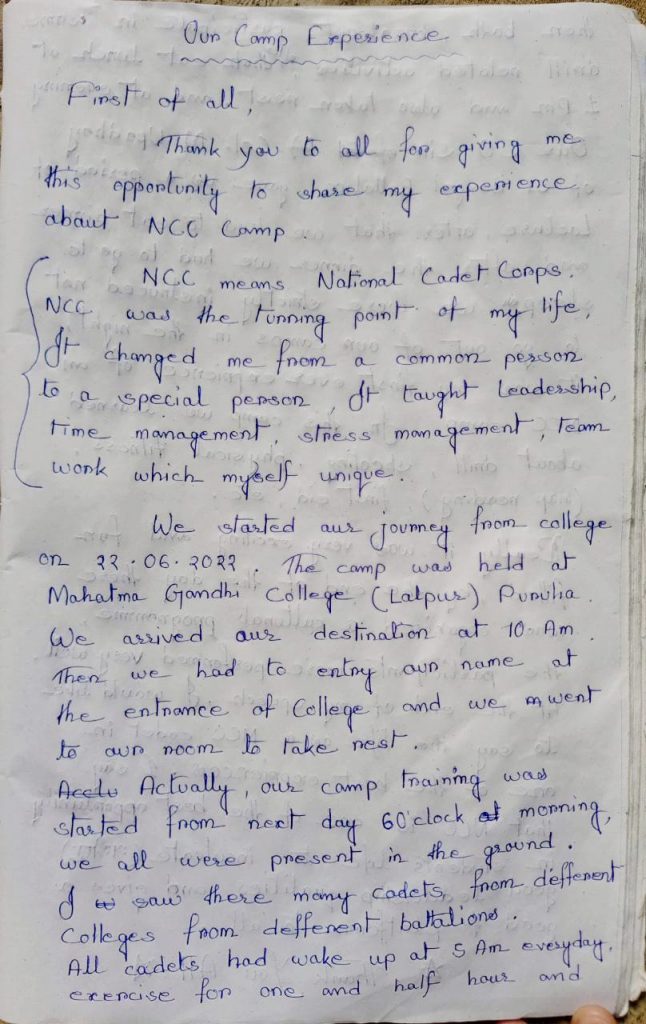 Our Camp Experience
First of all,
Thank you to all for giving me
this opportunity to share my experience
about NCC Camp.
NCC means National Cadet Corps.
NCC was the tunning point of my life,
It changed me from a common person
to a special person, It taught leadership,
time management, stress management, team
work which myself unique.
We started our journey from college
on 22.06.2022. The camp was held at
Mahatma Gandhi College (Lalpur) Purulia.
We arrived our destination at 10 Am.
Then we had to entry our name at
the entrance of College and we went
to our room to take rest.
Actually, our camp training was
started from next day 6 O'clock morning,
we all were present in the ground.
I saw there many cadets, from deffenent
Colleges from deffenent battalions.
All cadets had wake up at 5 Am everyday,
exercise for one and half hour and